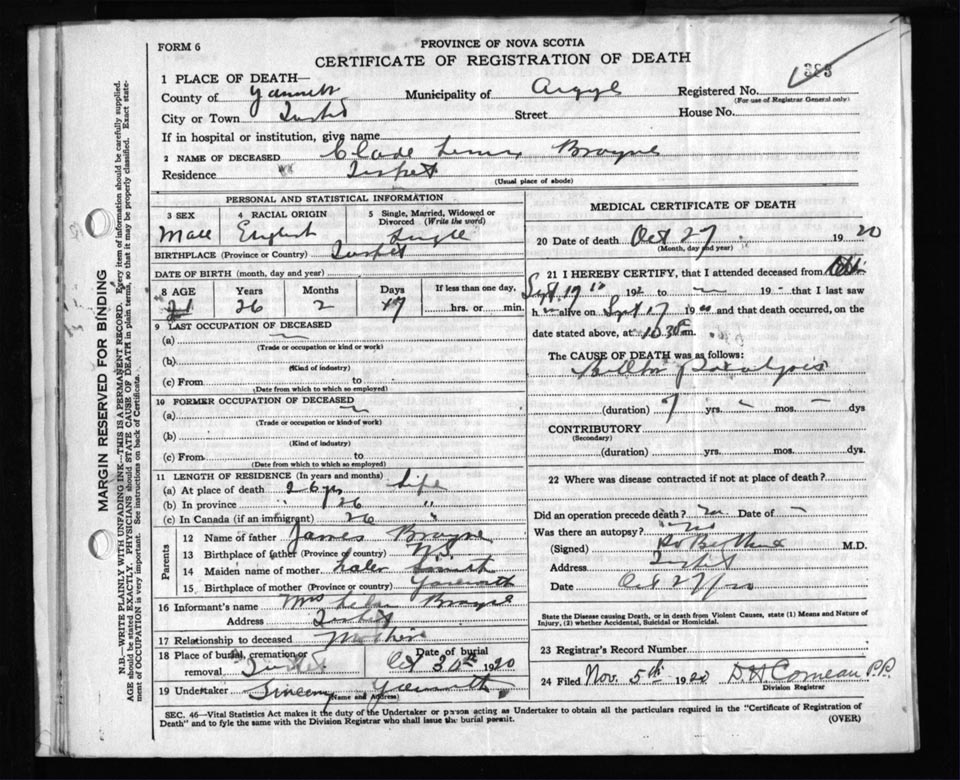 FORM 6
PROVINCE OF NOVA SCOTIA
CERTIFICATE OF REGISTRATION OF DEATH
383
1 PLACE OF DEATH—
County of Yarmouth Municipality of Argyle Registered No.
(For use of Registrar General only)
City or Town Tusket Street House No.
If in hospital or institution, give name
2 NAME OF DECEASED Brayne
Residence Tusket
(Usual place of abode)
PERSONAL AND STATISTICAL INFORMATION
3 SEX 4 RACIAL ORIGIN 5 Single, Married, Widowed or Divorced (Write the word)
Male English Single
BIRTHPLACE (Province or Country) Tusket
DATE OF BIRTH (month, day and year)
8 AGE Years Months Days If less than one day,
26 2 17 hrs. or min.
9 LAST OCCUPATION OF DECEASED
(a)
(Trade or occupation or kind or work)
(b)
(Kind of industry)
(c) From to
(Date from which to which so employed)
10 FORMER OCCUPATION OF DECEASED
(a)
(Trade or occupation or kind of work)
(b)
(Kind of industry)
(c) From to
(Date from which to which so employed)
11 LENGTH OF RESIDENCE (In years and months)
(a) At place of death 26 yrs Life
(b) In province " 26 "
(c) In Canada (if an immigrant) 26 "
Parents
12 Name of father James Brayne
13 Birthplace of father (Province or country) N.S.
14 Maiden name of mother Smith
15 Birthplace of mother (Province or country) Yarmouth
16 Informant's name Mrs Brayne
Address Tusket
17 Relationship to deceased Mother
18 Place of burial, cremation or removal Tusket
Date of burial
Oct 30th 1920
19 Undertaker Sweeny Yarmouth
(Name and Address)
MEDICAL CERTIFICATE OF DEATH
20 Date of death Oct 27 1920
(Month, day and year)
21 I HEREBY CERTIFY, that I attended deceased from
Sept 19 192 to 19 that I last saw
h alive on Sept 17 19 and that death occurred, on the
date stated above, at 10.30 m.
The CAUSE OF DEATH was as follows:
Paralysis
(duration) 7 yrs. mos. dys
CONTRIBUTORY
(Secondary)
(duration) yrs. mos. dys.
22 Where was disease contracted if not at place of death?
Did an operation precede death? no Date of
Was there an autopsy? no
(Signed) M.D.
Address Tusket
Date Oct 27/20
State the Disease causing Death, or in death from Violent Causes, state (1) Means and Nature of
Injury, (2) whether Accidental, Suicidal or Homicidal.
23 Registrar's Record Number
24 Filed Nov. 5th 1920 D H Comeau P.P.
Division Registrar
SEC. 46—Vital Statistics Act makes it the duty of the Undertaker or person acting as Undertaker to obtain all the particulars required in the "Certificate of Registration of
Death" and to fyle the same with the Division Registrar who shall issue the burial permit.
(OVER)
MARGIN RESERVED FOR BINDING
N.B.—WRITE PLAINLY WITH UNFADING INK—THIS IS A PERMANENT RECORD. Every item of information should be carefully supplied.
AGE should be stated EXACTLY. PHYSICIANS should STATE CAUSE OF DEATH in plain terms, so that it may be properly classified. Exact state-
ment of OCCUPATION is very important. See instructions on back of Certificate.